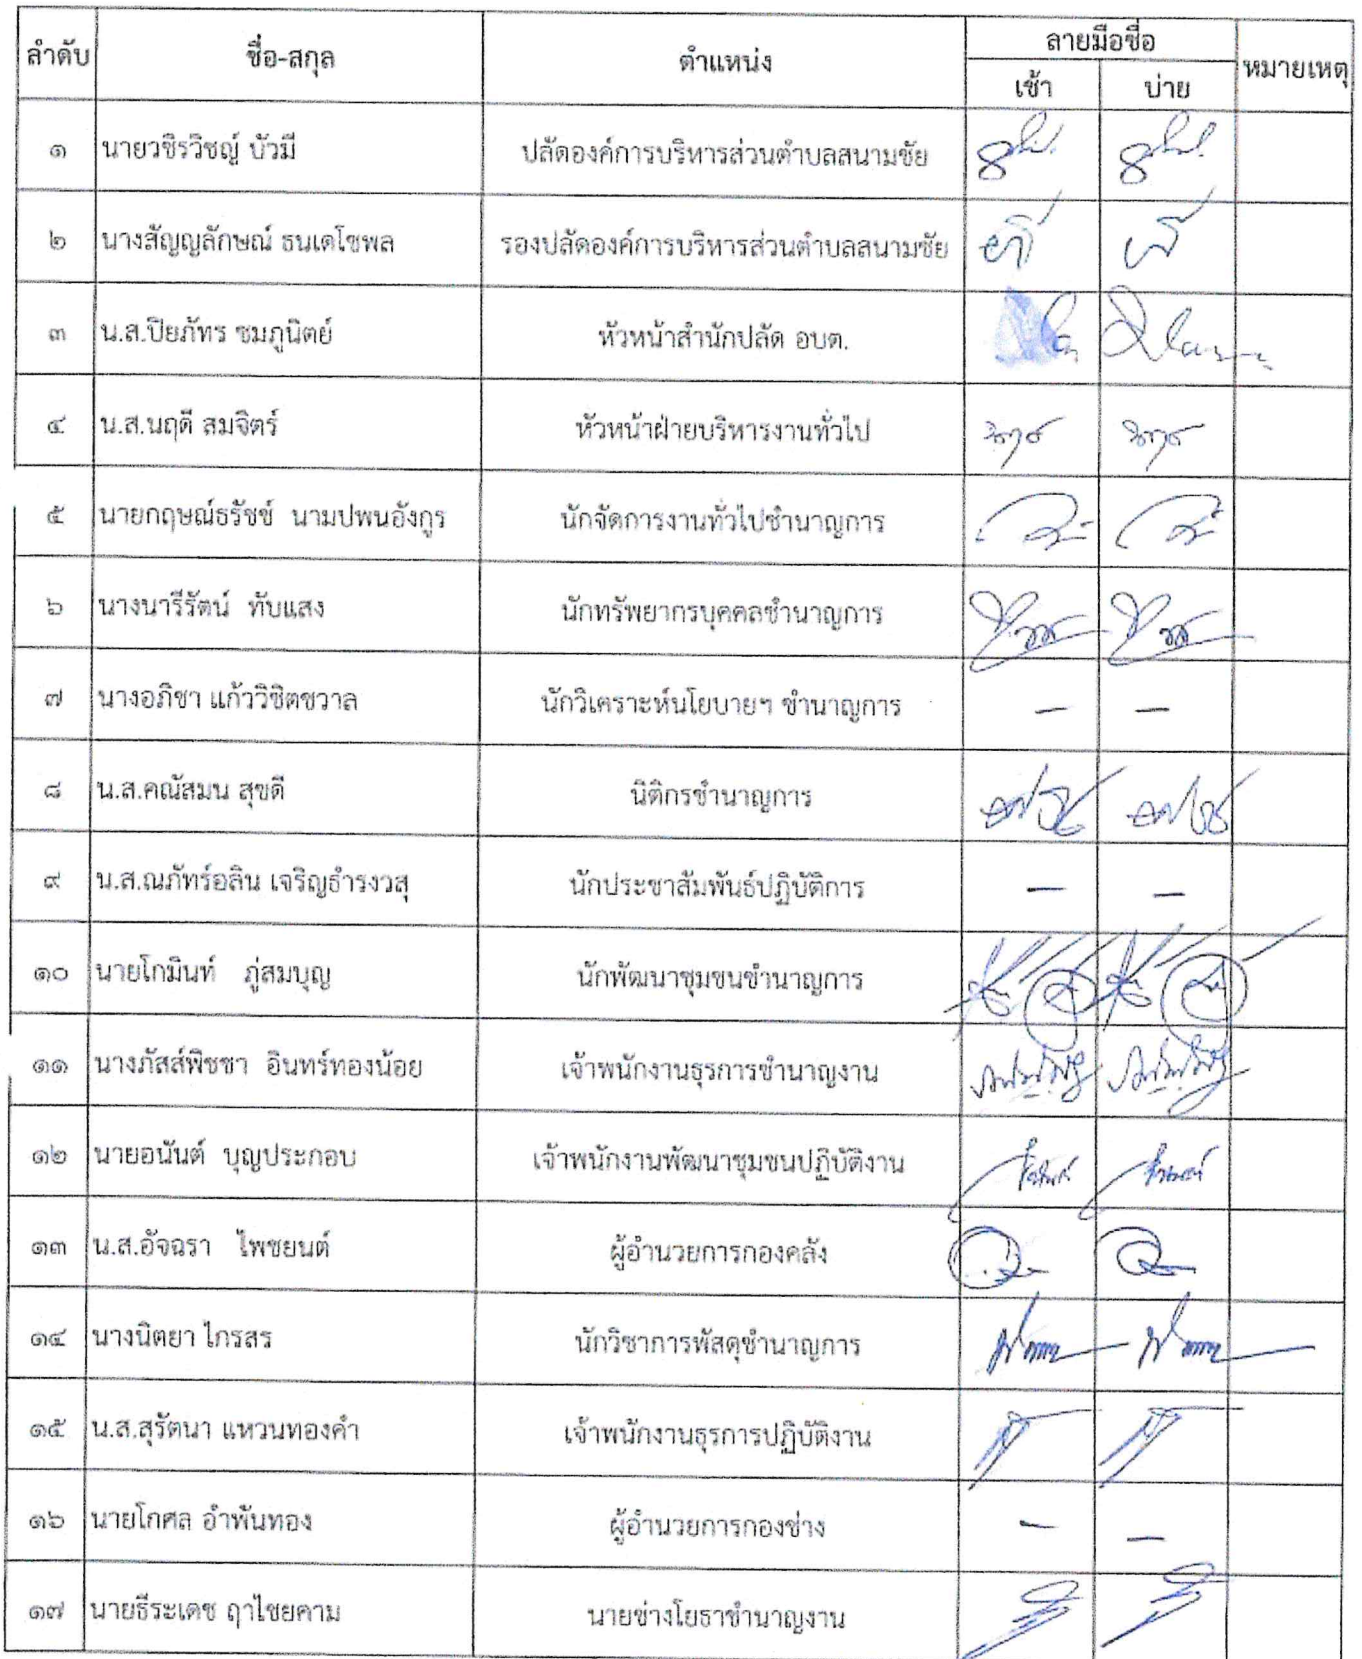 ลำดับ ชื่อ-สกุล ตำแหน่ง ลายมือชื่อ หมายเหตุ
เช้า บ่าย
๑ นายวชิรวิชญ์ บัวมี ปลัดองค์การบริหารส่วนตำบลสนามชัย
๒ นางสัญญลักษณ์ ธนเดโชพล รองปลัดองค์การบริหารส่วนตำบลสนามชัย
๓ น.ส.ปิยภัทร ชมภูนิตย์ หัวหน้าสำนักปลัด อบต.
๔ น.ส.นฤดี สมจิตร์ หัวหน้าฝ่ายบริหารงานทั่วไป
๕ นายกฤษณ์ธรัชช์ นามปพนอังกูร นักจัดการงานทั่วไปชำนาญการ
๖ นางนารีรัตน์ ทับแสง นักทรัพยากรบุคคลชำนาญการ
๗ นางอภิชา แก้ววิชิตชวาล นักวิเคราะห์นโยบายฯ ชำนาญการ — —
๘ น.ส.คณัสมน สุขดี นิติกรชำนาญการ
๙ น.ส.ณภัทร์อลิน เจริญธำรงวสุ นักประชาสัมพันธ์ปฏิบัติการ — —
๑๐ นายโกมินท์ ภู่สมบุญ นักพัฒนาชุมชนชำนาญการ
๑๑ นางภัสส์พิชชา อินทร์ทองน้อย เจ้าพนักงานธุรการชำนาญงาน
๑๒ นายอนันต์ บุญประกอบ เจ้าพนักงานพัฒนาชุมชนปฏิบัติงาน
๑๓ น.ส.อัจฉรา ไพชยนต์ ผู้อำนวยการกองคลัง
๑๔ นางนิตยา ไกรสร นักวิชาการพัสดุชำนาญการ
๑๕ น.ส.สุรัตนา แหวนทองคำ เจ้าพนักงานธุรการปฏิบัติงาน
๑๖ นายโกศล อำพันทอง ผู้อำนวยการกองช่าง — —
๑๗ นายธีระเดช ฤาไชยคาม นายช่างโยธาชำนาญงาน